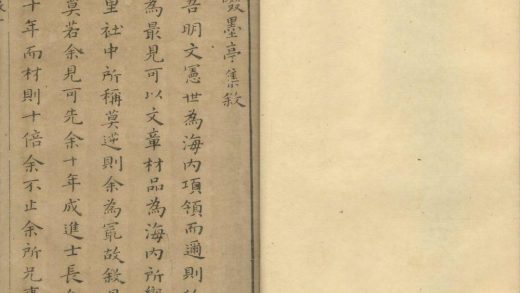 墨亭集敘
吾明文憲世為海內項領而邇則
為最見可以文章材品為海內所
里社中所稱莫逆則余為冣故敘
莫若余見可先余十年成進士長
十年而材則十倍余不止余所兄事